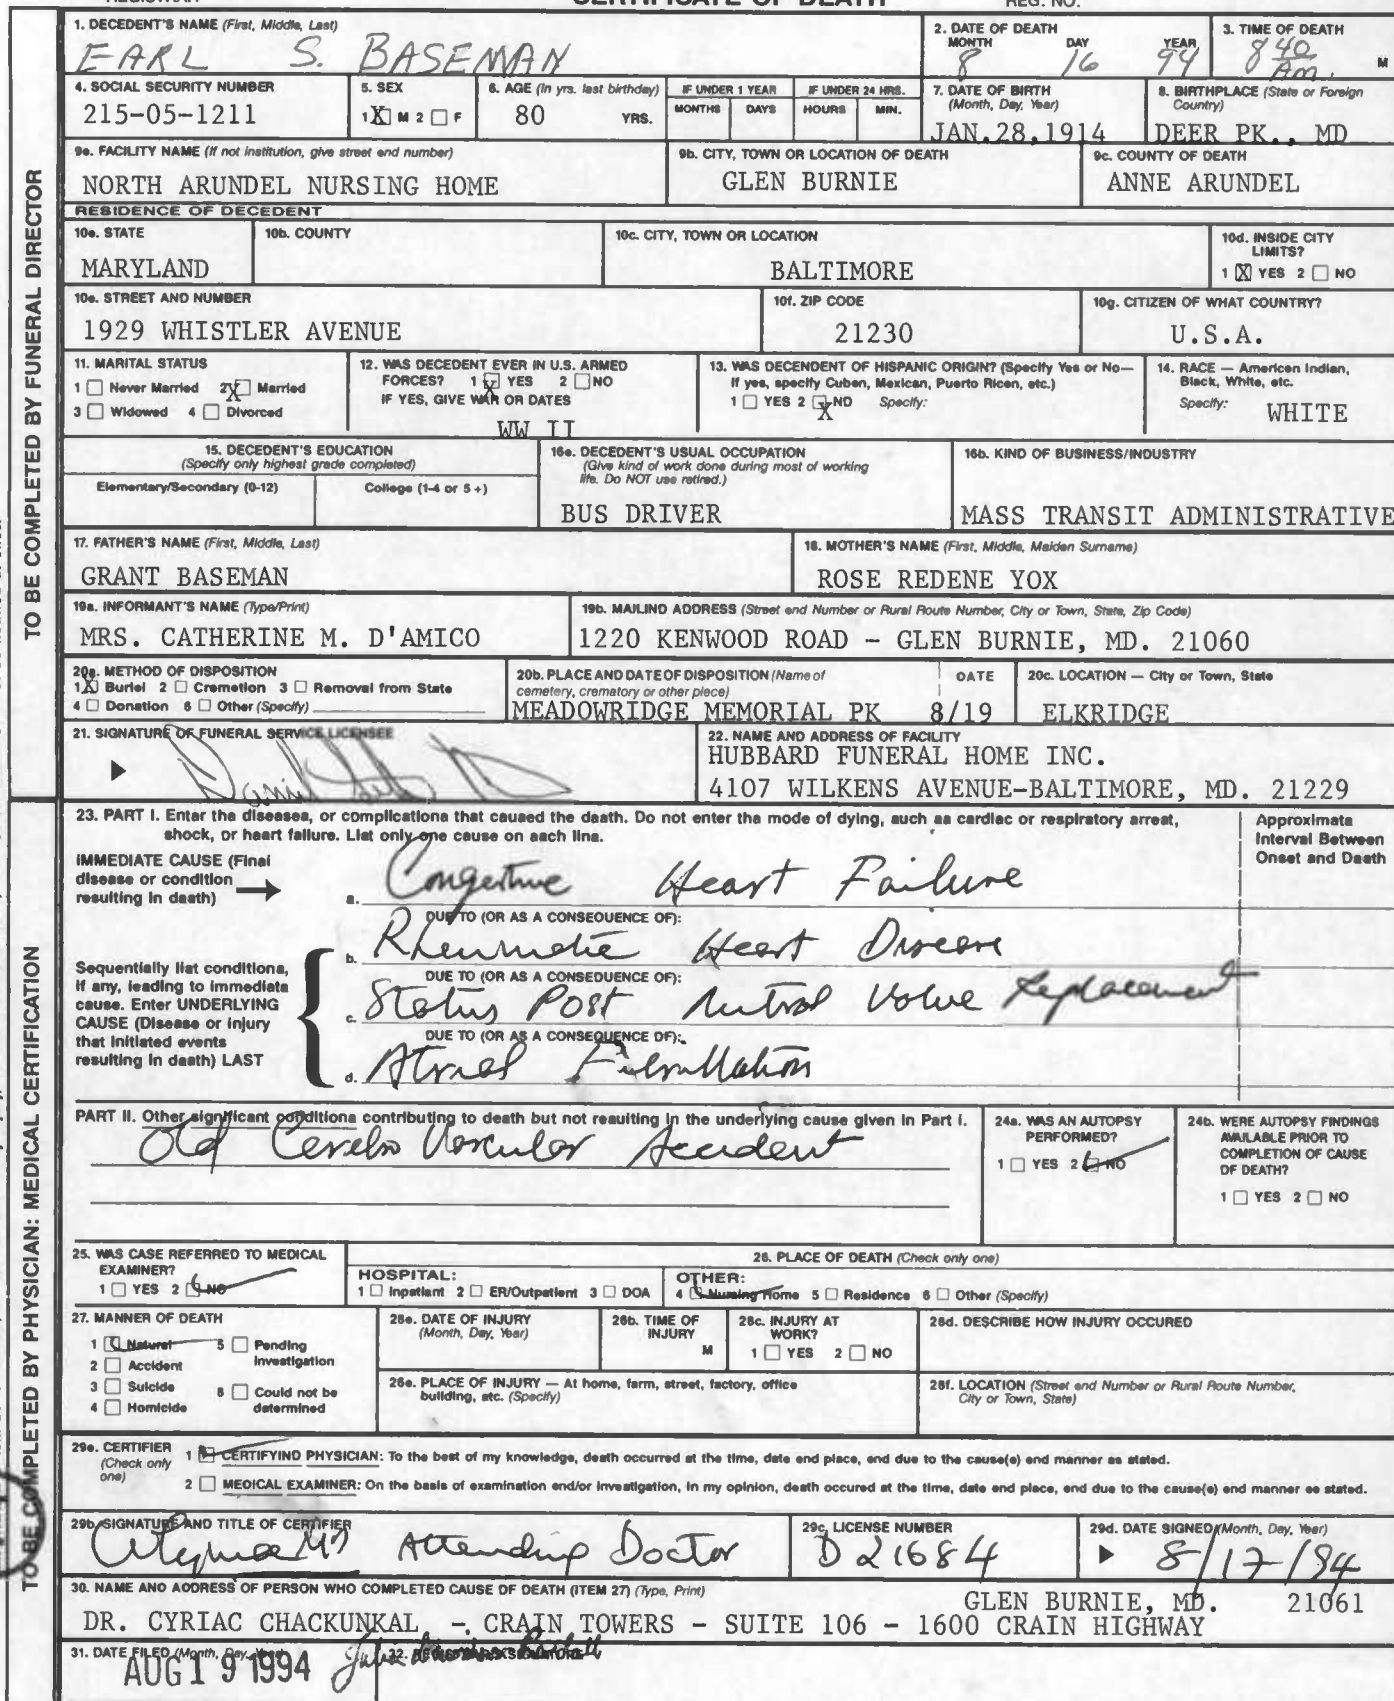 CERTIFICATE OF DEATH REG. NO.
1. DECEDENT'S NAME (First, Middle, Last)
EARL S. BASEMAN
2. DATE OF DEATH
MONTH DAY YEAR
8 16 94
3. TIME OF DEATH
8 40 Am. M
4. SOCIAL SECURITY NUMBER
215-05-1211
5. SEX
1 X M 2 F
6. AGE (In yrs. last birthday)
80 YRS.
IF UNDER 1 YEAR
MONTHS DAYS
IF UNDER 24 HRS.
HOURS MIN.
7. DATE OF BIRTH
(Month, Day, Year)
JAN.28,1914
8. BIRTHPLACE (State or Foreign
Country)
DEER PK., MD
9e. FACILITY NAME (If not institution, give street end number)
NORTH ARUNDEL NURSING HOME
9b. CITY, TOWN OR LOCATION OF DEATH
GLEN BURNIE
9c. COUNTY OF DEATH
ANNE ARUNDEL
RESIDENCE OF DECEDENT
10e. STATE
MARYLAND
10b. COUNTY
10c. CITY, TOWN OR LOCATION
BALTIMORE
10d. INSIDE CITY
LIMITS?
1 X YES 2 NO
10e. STREET AND NUMBER
1929 WHISTLER AVENUE
10f. ZIP CODE
21230
10g. CITIZEN OF WHAT COUNTRY?
U.S.A.
11. MARITAL STATUS
1 Never Married 2 X Married
3 Widowed 4 Divorced
12. WAS DECEDENT EVER IN U.S. ARMED
FORCES? 1 X YES 2 NO
IF YES, GIVE WAR OR DATES
WW II
13. WAS DECENDENT OF HISPANIC ORIGIN? (Specify Yes or No—
If yes, specify Cuben, Mexican, Puerto Ricen, etc.)
1 YES 2 X ND Specify:
14. RACE — Americen Indien,
Bleck, White, etc.
Specify: WHITE
15. DECEDENT'S EDUCATION
(Specify only highest grade completed)
Elementery/Secondary (0-12) College (1-4 or 5+)
16e. DECEDENT'S USUAL OCCUPATION
(Give kind of work done during most of working
life. Do NOT use retired.)
BUS DRIVER
16b. KIND OF BUSINESS/INDUSTRY
MASS TRANSIT ADMINISTRATIVE
17. FATHER'S NAME (First, Middle, Last)
GRANT BASEMAN
18. MOTHER'S NAME (First, Middle, Maiden Surname)
ROSE REDENE YOX
19a. INFORMANT'S NAME (Type/Print)
MRS. CATHERINE M. D'AMICO
19b. MAILIND ADDRESS (Street end Number or Rural Route Number, City or Town, State, Zip Code)
1220 KENWOOD ROAD - GLEN BURNIE, MD. 21060
20a. METHOD OF DISPOSITION
1 X Buriel 2 Cremetion 3 Removal from State
4 Donation 6 Other (Specify)
20b. PLACE AND DATE OF DISPOSITION (Name of
cemetery, crematory or other plece)
DATE
MEADOWRIDGE MEMORIAL PK 8/19
20c. LOCATION — City or Town, State
ELKRIDGE
21. SIGNATURE OF FUNERAL SERVICE LICENSEE
22. NAME AND ADDRESS OF FACILITY
HUBBARD FUNERAL HOME INC.
4107 WILKENS AVENUE-BALTIMORE, MD. 21229
TO BE COMPLETED BY FUNERAL DIRECTOR
23. PART I. Enter the diseases, or complications that caused the death. Do not enter the mode of dying, such as cardiac or respiratory arrest,
shock, or heart failure. List only one cause on each line.
Approximata
Interval Between
Onset and Death
IMMEDIATE CAUSE (Final
disease or condition
resulting in death)
a. Congestive Heart Failure
DUE TO (OR AS A CONSEQUENCE OF):
b. Rheumatic Heart Disease
DUE TO (OR AS A CONSEQUENCE OF):
c. Status Post Mitral Valve Replacement
DUE TO (OR AS A CONSEQUENCE DF):
d. Atrial Fibrillation
Sequentially list conditions,
if any, leading to immediate
cause. Enter UNDERLYING
CAUSE (Disease or injury
that initiated events
resulting in death) LAST
PART II. Other significant conditions contributing to death but not resulting in the underlying cause given in Part I.
Old Cerebro Vascular Accident
24a. WAS AN AUTOPSY
PERFORMED?
1 YES 2 NO
24b. WERE AUTOPSY FINDINGS
AVAILABLE PRIOR TO
COMPLETION OF CAUSE
OF DEATH?
1 YES 2 NO
25. WAS CASE REFERRED TO MEDICAL
EXAMINER?
1 YES 2 NO
26. PLACE OF DEATH (Check only one)
HOSPITAL:
1 Inpatient 2 ER/Outpatient 3 DOA
OTHER:
4 Nursing Home 5 Residence 6 Other (Specify)
27. MANNER OF DEATH
1 Natural 5 Pending
Investigation
2 Accident
3 Suicide 8 Could not be
determined
4 Homicide
28e. DATE OF INJURY
(Month, Day, Year)
28b. TIME OF
INJURY
M
28c. INJURY AT
WORK?
1 YES 2 NO
28d. DESCRIBE HOW INJURY OCCURED
28e. PLACE OF INJURY — At home, farm, street, factory, office
building, etc. (Specify)
28f. LOCATION (Street end Number or Rural Route Number,
City or Town, State)
29e. CERTIFIER
(Check only
one)
1 CERTIFYIND PHYSICIAN: To the best of my knowledge, death occurred at the time, date end place, end due to the cause(e) end manner as stated.
2 MEDICAL EXAMINER: On the basis of examination end/or investigation, in my opinion, death occured at the time, date end place, end due to the cause(e) end manner ee stated.
29b. SIGNATURE AND TITLE OF CERTIFIER
Attending Doctor
29c. LICENSE NUMBER
D 21684
29d. DATE SIGNED (Month, Day, Year)
8/17/94
30. NAME AND ADDRESS OF PERSON WHO COMPLETED CAUSE OF DEATH (ITEM 27) (Type, Print)
GLEN BURNIE, MD. 21061
DR. CYRIAC CHACKUNKAL - CRAIN TOWERS - SUITE 106 - 1600 CRAIN HIGHWAY
31. DATE FILED (Month, Day, Year)
AUG 19 1994
32. REGISTRAR'S SIGNATURE
TO BE COMPLETED BY PHYSICIAN: MEDICAL CERTIFICATION